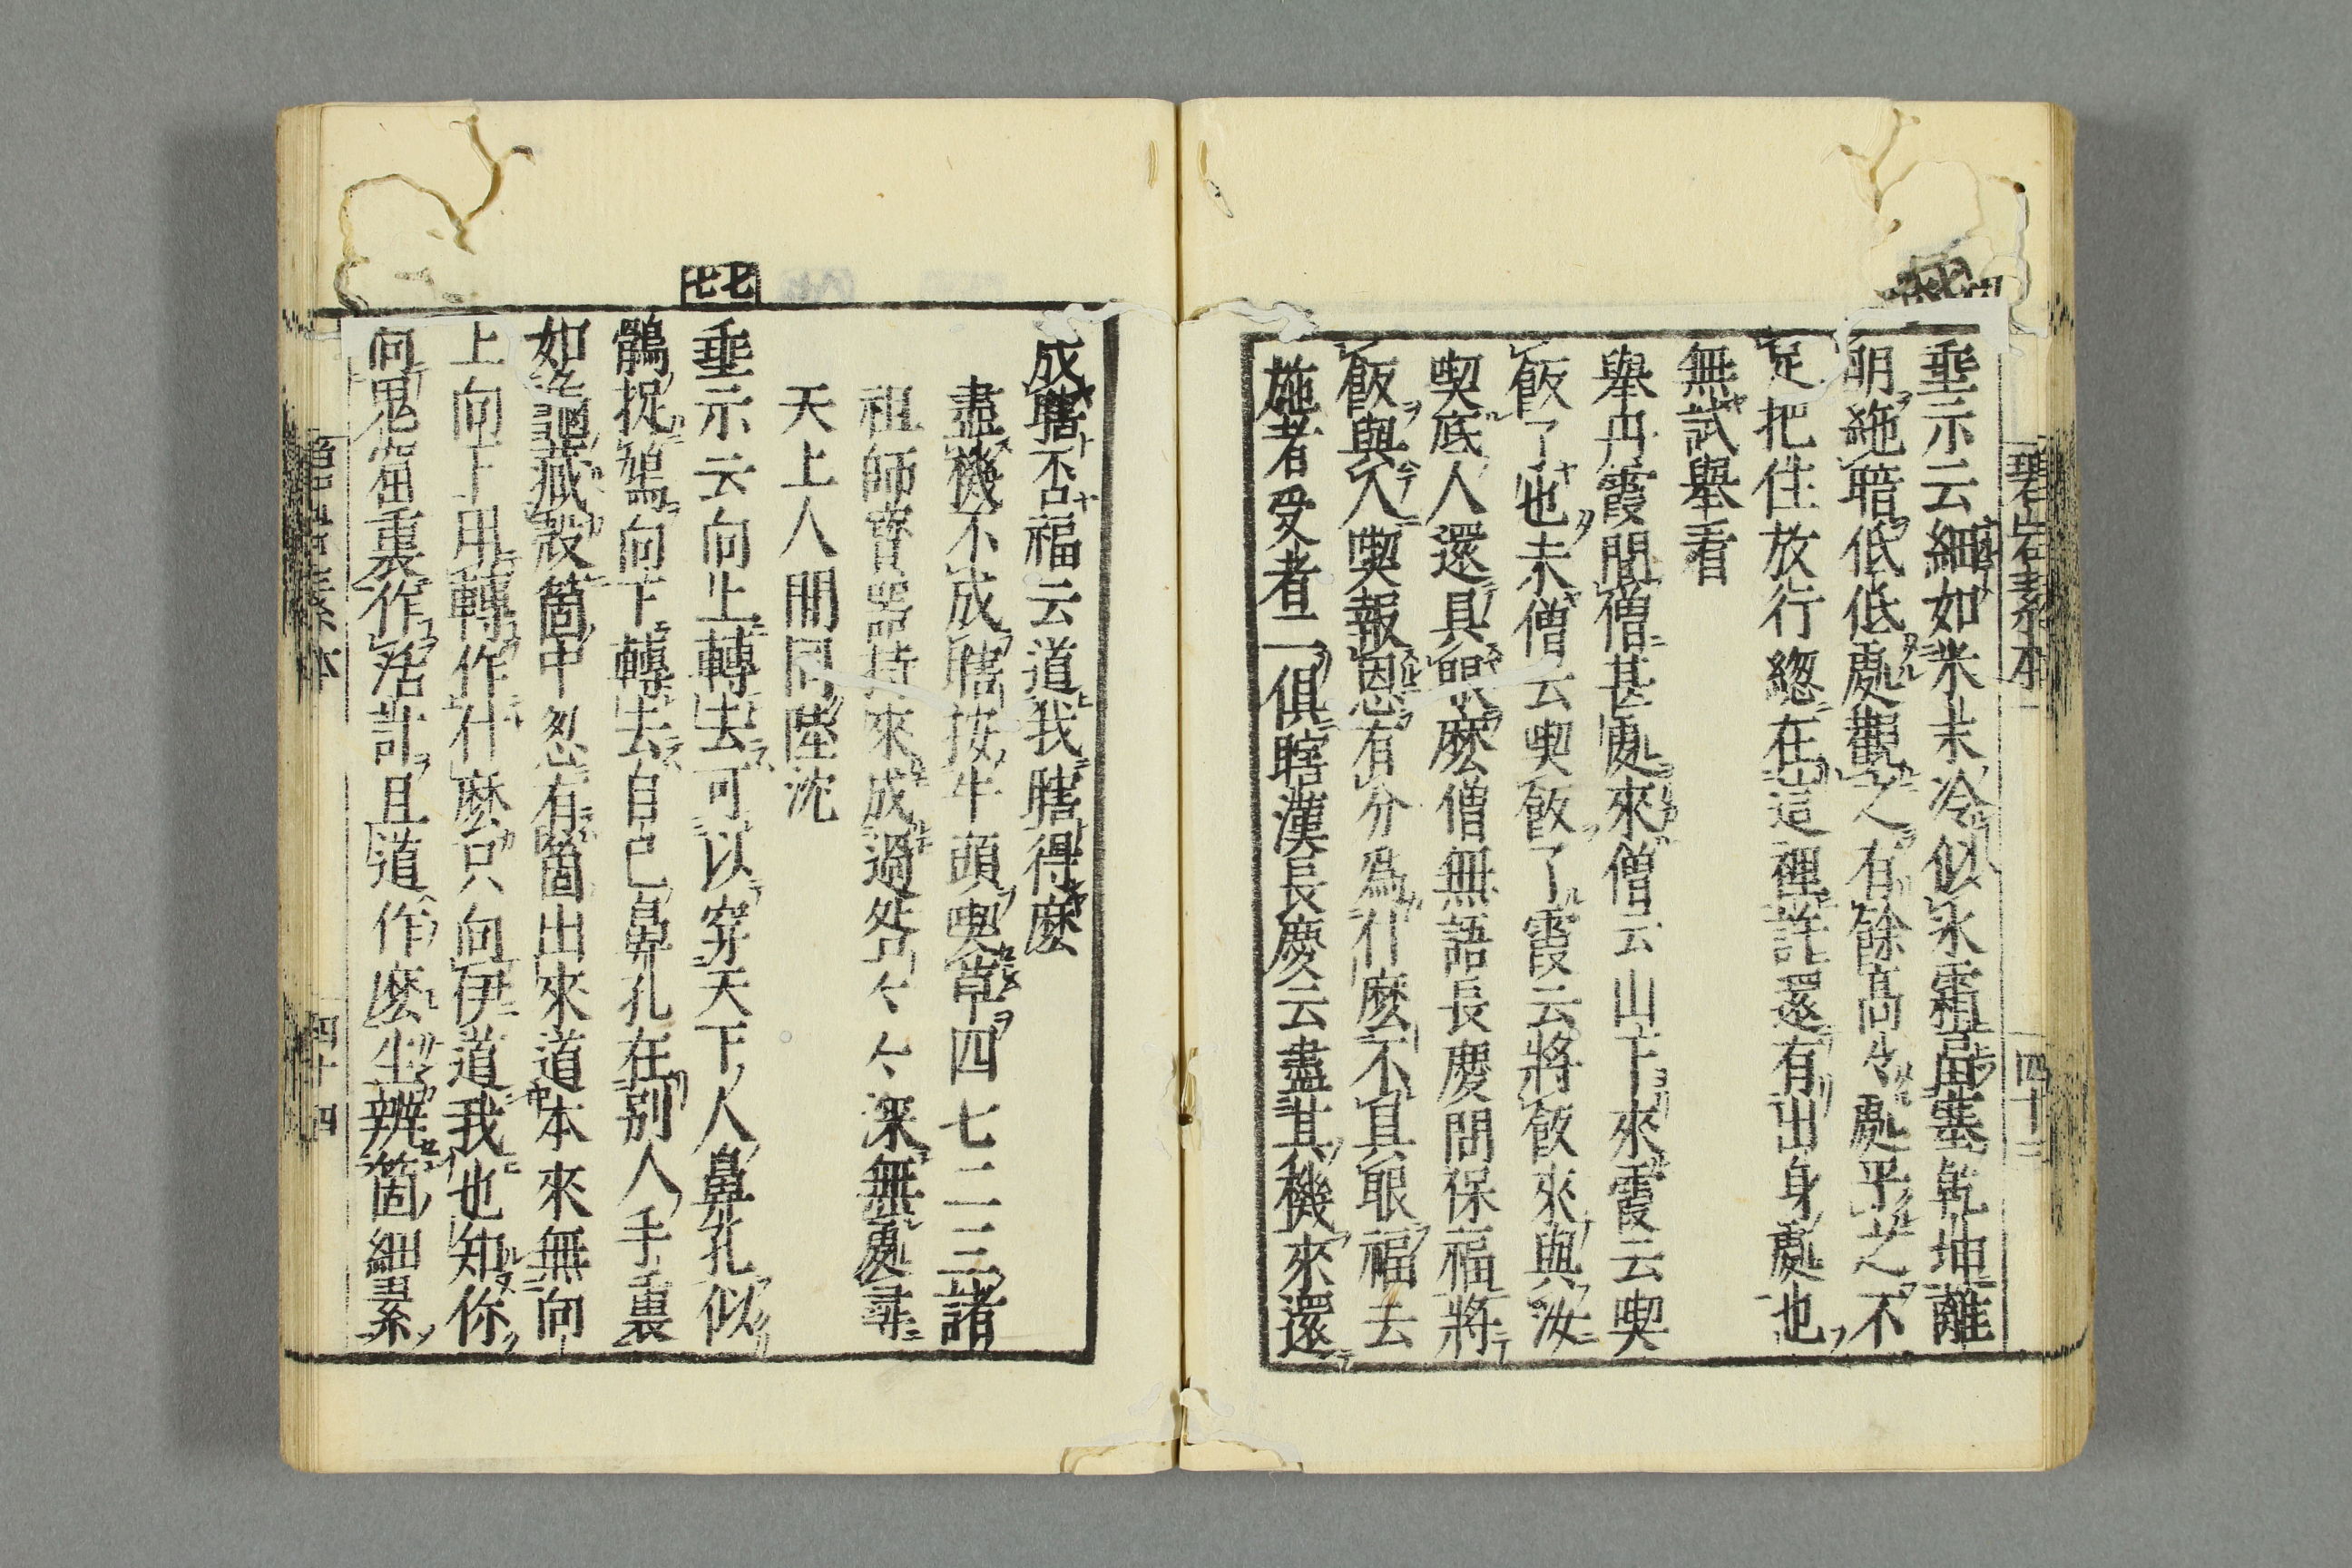 垂示云細如米末冷似氷霜畐塞乾坤離
明絶暗低低處觀之有餘高々處平之不
足把住放行緫在這裡許還有出身處也
無試舉看
舉丹霞問僧甚處來僧云山下來霞云喫
飯了也未僧云喫飯了霞云將飯來與汝
喫底人還具眼麽僧無語長慶問保福將
飯與人喫報恩有分爲什麽不具眼福云
施者受者二俱瞎漢長慶云盡其機來還
碧岩素本
四十三
成瞎否福云道我瞎得麽
盡機不成瞎按牛頭喫草四七二三諸
祖師寳噐持來成過咎々々々深無處尋
天上人間同陸沈
七七
垂示云向上轉去可以穿天下人鼻孔似
鶻捉鳩向下轉去自己鼻孔在別人手裏
如龜藏殼箇中忽有箇出來道本來無向
上向下用轉作什麽只向伊道我也知你
向鬼窟裏作活計且道作麽生辨箇緇素
四十四